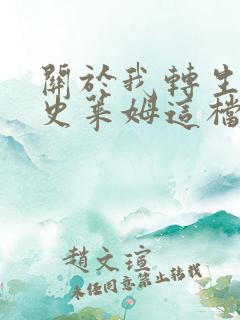 關於我轉生
史萊姆這檔
趙文瑄
未經同意禁止轉載